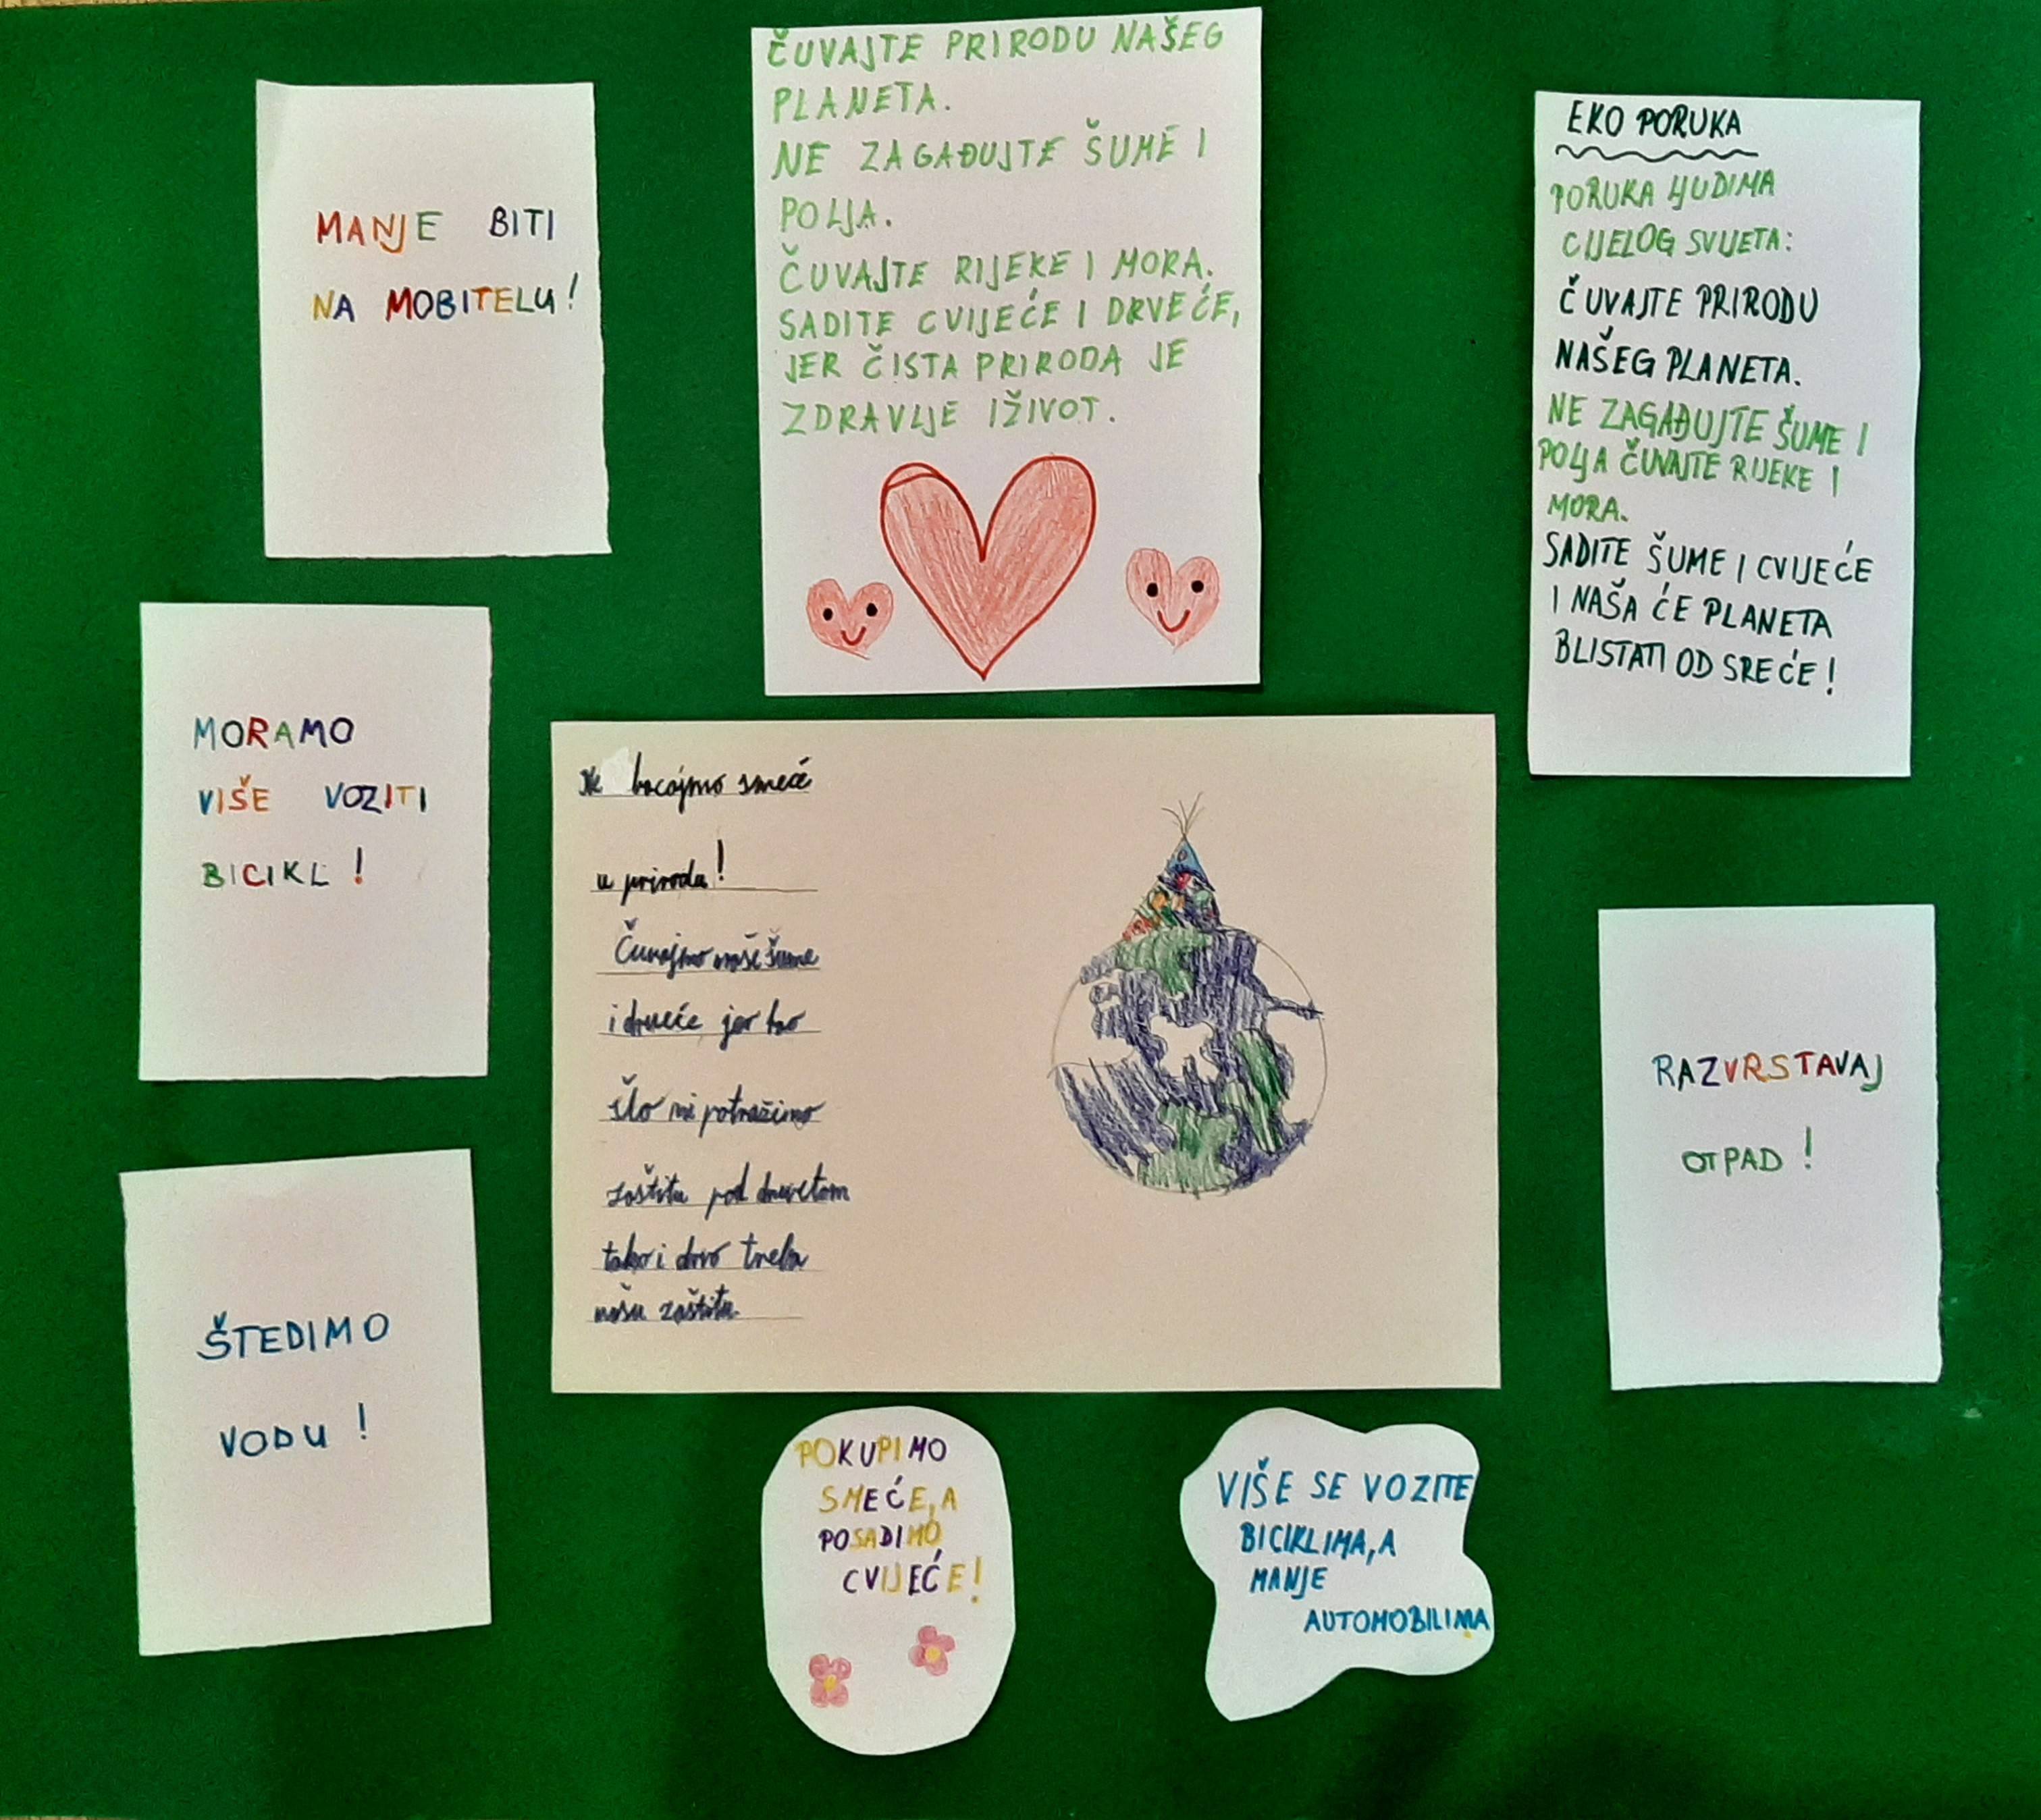 MANJE BITI
NA MOBITELU!
ČUVAJTE PRIRODU NAŠEG
PLANETA.
NE ZAGAĐUJTE ŠUME I
POLJA.
ČUVAJTE RIJEKE I MORA.
SADITE CVIJEĆE I DRVEĆE,
JER ČISTA PRIRODA JE
ZDRAVLJE IŽIVOT.
EKO PORUKA
PORUKA LJUDIMA
CIJELOG SVIJETA:
ČUVAJTE PRIRODU
NAŠEG PLANETA.
NE ZAGAĐUJTE ŠUME I
POLJA ČUVAJTE RIJEKE I
MORA.
SADITE ŠUME I CVIJEĆE
I NAŠA ĆE PLANETA
BLISTATI OD SREĆE!
MORAMO
VIŠE VOZITI
BICIKL!
Ne bacajmo smeće
u prirodu!
Čuvajmo naše šume
i drveće jer kao
što mi potražimo
zaštitu pod drvetom
tako i drvo treba
našu zaštitu.
RAZVRSTAVAJ
OTPAD!
ŠTEDIMO
VODU!
POKUPIMO
SMEĆE, A
POSADIMO
CVIJEĆE!
VIŠE SE VOZITE
BICIKLIMA, A
MANJE
AUTOMOBILIMA